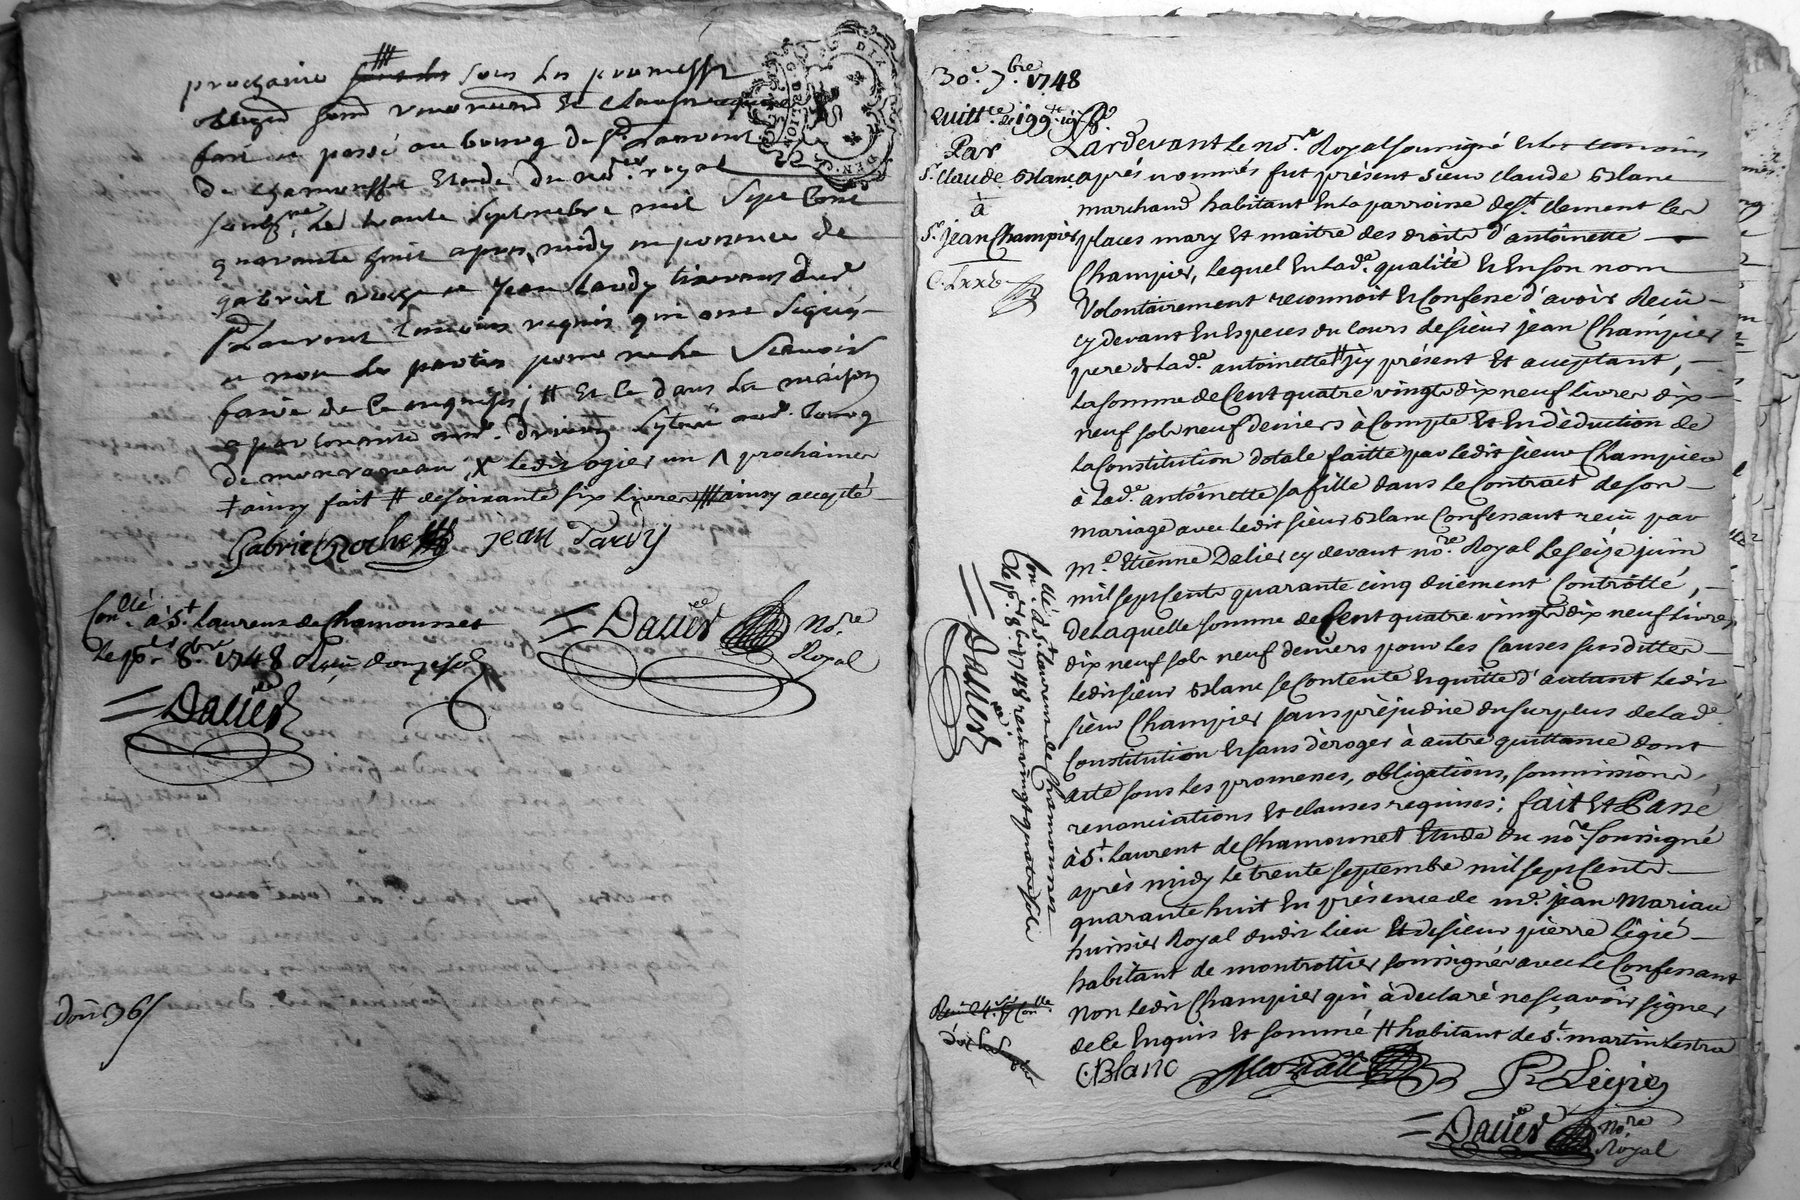 prochaine sous les promesses
obligõn soũ renonciaõn et clauses requises
fait et passé au bourg de St Laurent
de Chamousset Etude du no.re royal
soussigné, le trente septembre mil sept cent
quarante huit apres midy en presence de
gabriel roche et jean tardy
St Laurent temoins requis qui ont signé
et non les parties pour ne le scavoir
faire de ce enquises; # Et ce dans la maison
de monrottier X ledit ogier un ^ prochaines
+ ainsy fait # de soixante six livres ### ainsy accepté
Gabriel Roche jean Tardy
Con.llé à St. Laurens de Chamousset
Le p.r 8.bre 1748 Reçu douze sols
Dalier
Dalier No.re
Royal
Doit 36s
30.e 7.bre 1748
Quitt.ce de 199.lt 19s 9d
Par
S.r Claude Blanc
à
S.r jean Champier
Pardevant le no.re Royal soussigné et les temoins
après nommés fut présent sieur Claude Blanc
marchand habitant en la parroisse de St. Clement les
places mary Et maitre des droits d'antoinette
Champier, lequel en lad.e qualité et en son nom
Volontairement reconnoit et Confesse d'avoir Reçu
cy devant en Especes du cours de sieur jean Champier
pere de lad.e antoinette # jcy présent Et acceptant,
La somme de Cent quatre vingts dix neuf Livres dix
neuf sols neuf deniers à Compte Et En déduction de
la Constitution dotale faitte par ledit sieur Champier
à lad.e antoinette sa fille dans le Contrait de son
mariage avec ledit sieur Blanc Confessant reçu par
M.e Etienne Dalier cy devant no.re Royal Le seize juin
mil sept cents quarante cinq duement Controllé,
de laquelle somme de Cent quatre vingts dix neuf Livres
dix neuf sols neuf deniers pour les Causes susdittes
ledit sieur Blanc se Contente Et quitte d'autant ledit
sieur Champier sans préjudice du surplus de lad.e
Constitution Et sans déroger à autre quittance dont
acte sous les promesses, obligations, soumissions,
renonciations et clauses requises; fait Et Passé
à St. Laurent de Chamousset Etude du no.re soussigné
après midy Le trente septembre mil sept Cents
quarante huit En présence de m.e jean Mariau
huissier Royal dudit lieu Et de sieur pierre Légié
habitant de montrottier soussignés avec le Confessant
Non ledit Champier qui à déclaré ne sçavoir signer
de ce Enquis Et sommé, # habitant de St. martin Lestra
C Blanc Mariau P Legié
Dalier No.re
Royal
Con.llé à St. Laurens de Chamousset
Le p.r 8.bre 1748 reçu vingt quatre sols
Dalier